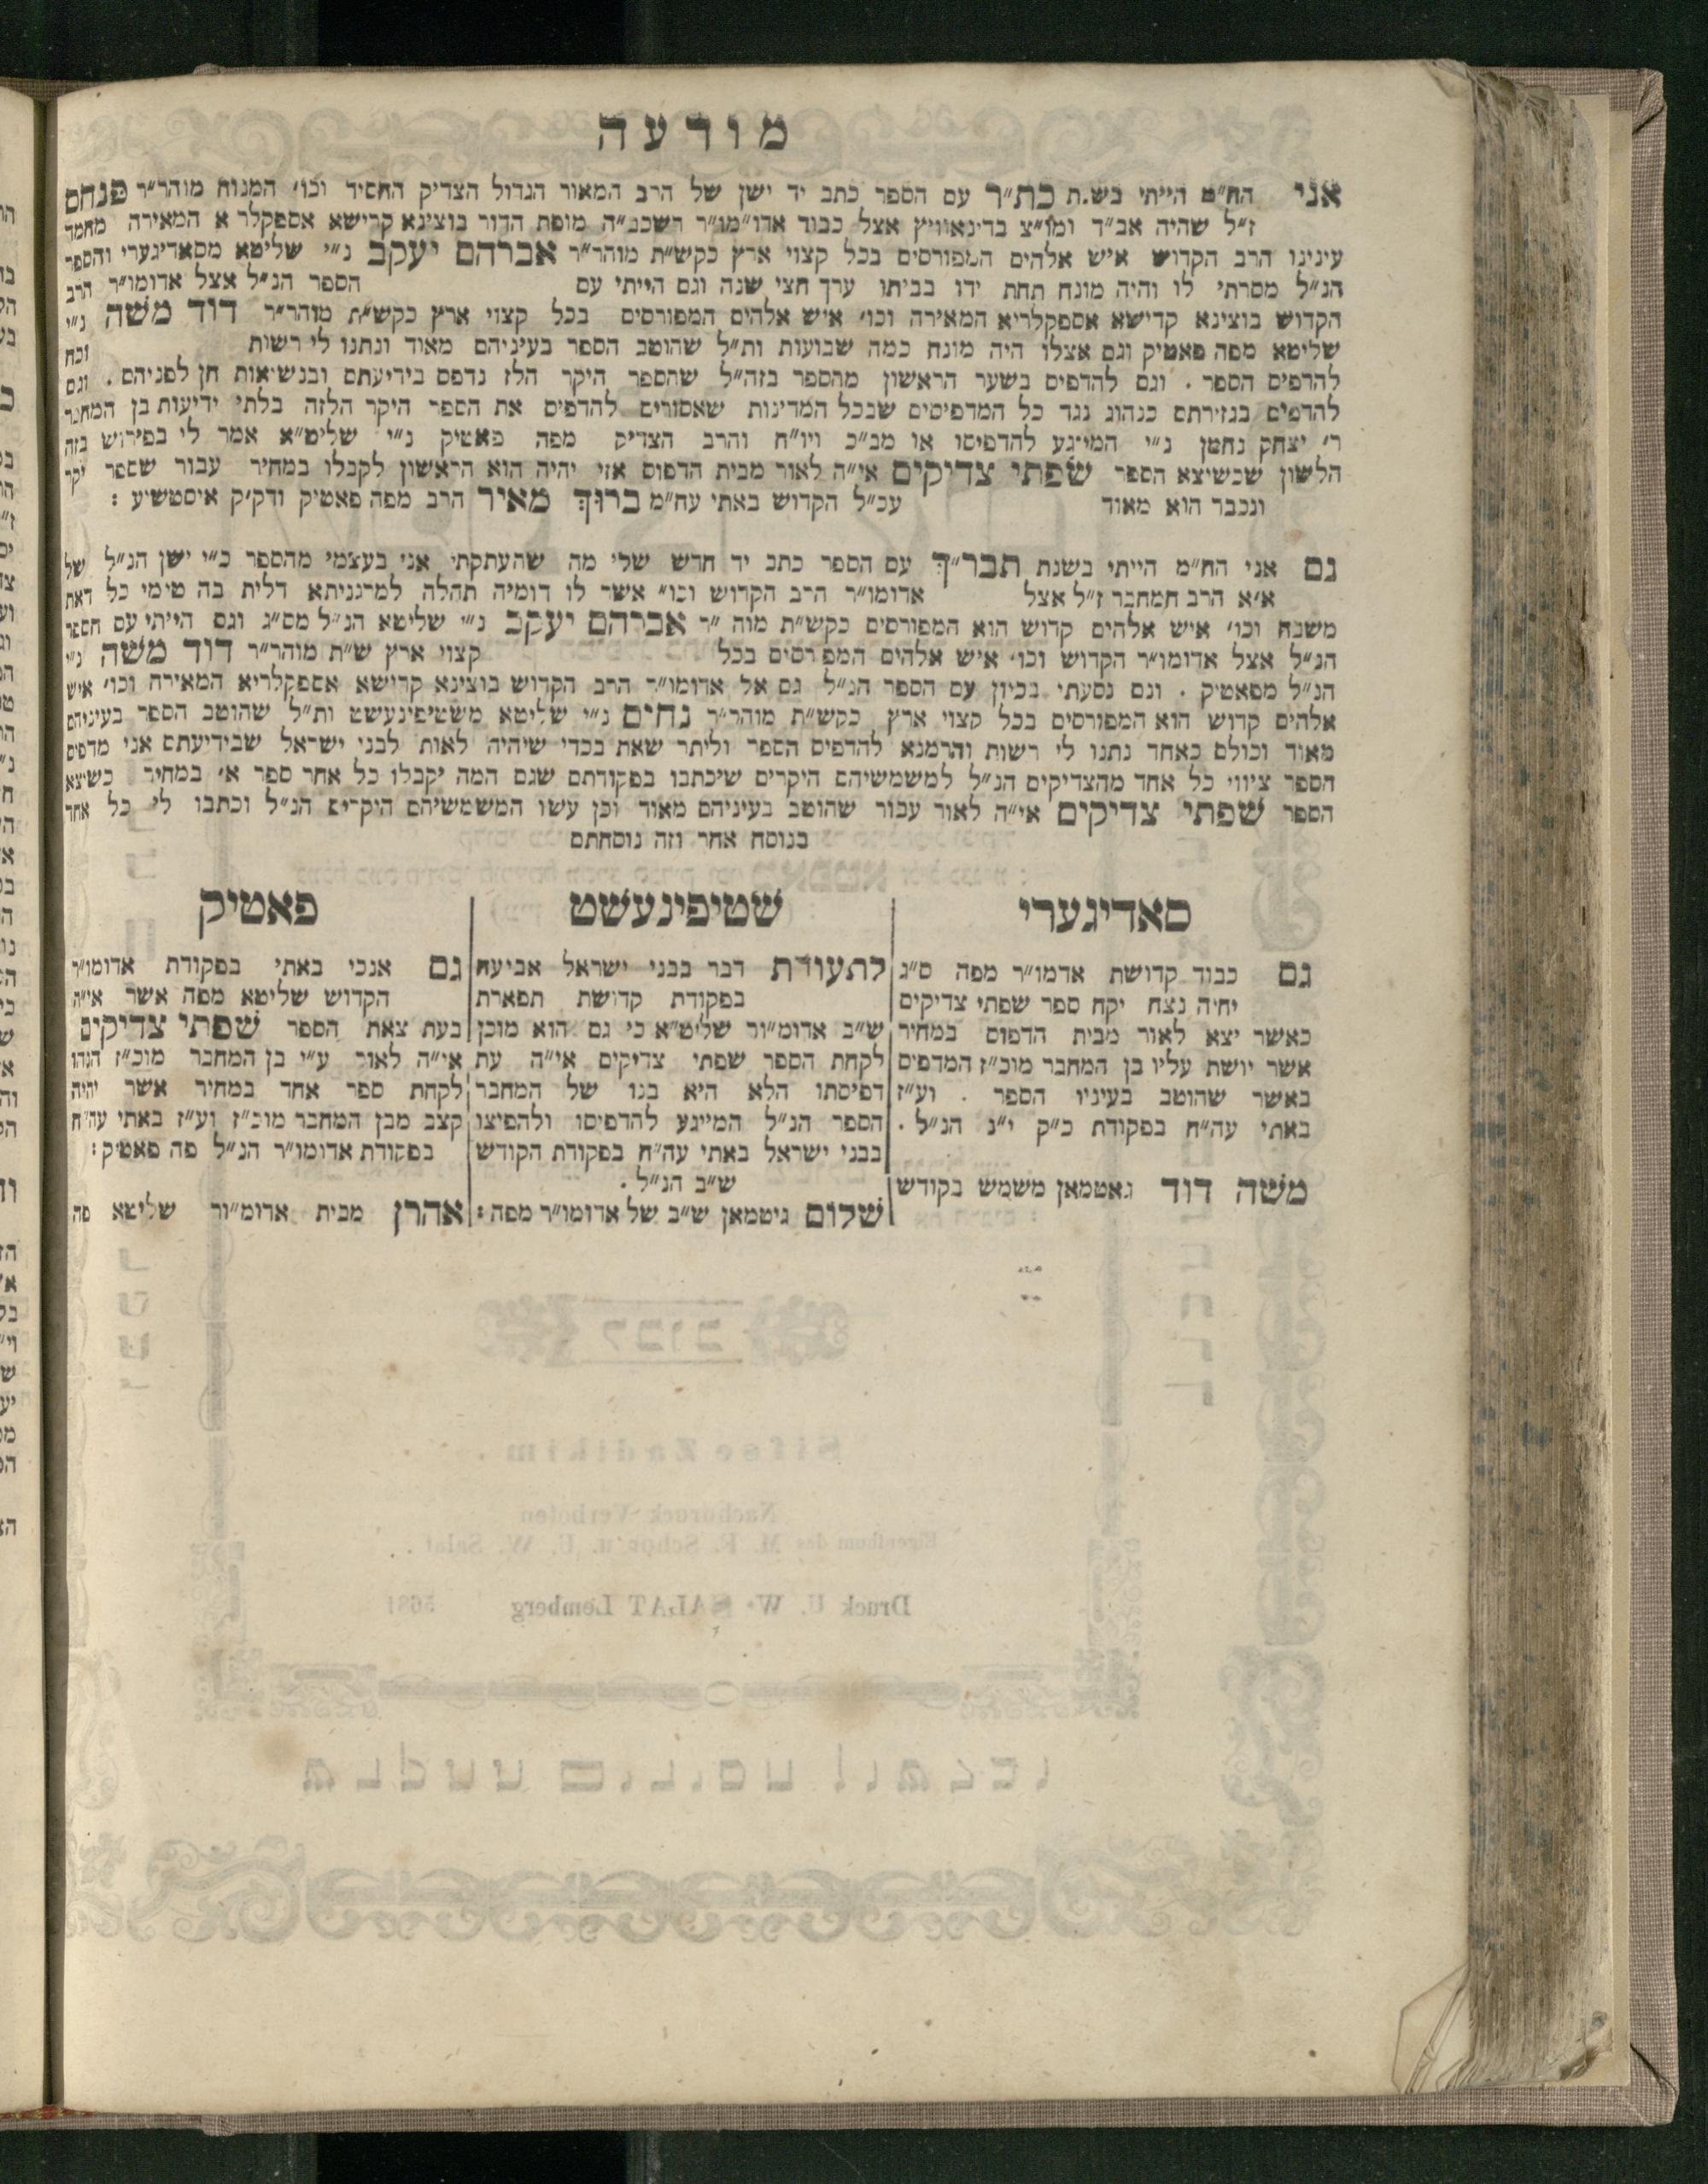 מודעה
אני החי"מ הייתי בש.ת כת"ר עם הספר כתב יד ישן של הרב המאור הגדול הצדיק החסיד וכו' המנוח מוהר"ר פנחס
ז"ל שהיה אב"ד ומו"צ בדינאוויץ אצל כבוד אדו"מו"ר רשכבה"ג מופת הדור בוצינא קדישא אספקלר א המאירה מחמד
עינינו הרב הקדוש איש אלהים המפורסים בכל קצוי ארץ כקש"ת מוהר"ר אברהם יעקב נ"י שליטא מסאדיגערי והספר
הנ"ל מסרתי לו והיה מונח תחת ידו בביתו ערך חצי שנה וגם הייתי עם הספר הנ"ל אצל אדומו"ר הרב
הקדוש בוצינא קדישא אספקלריא המאירה וכו' איש אלהים המפורסים בכל קצוי ארץ כקש"ת מוהר"ר דוד משה נ"י
שליטא מפה פאטיק וגם אצלו היה מונח כמה שבועות ות"ל שהוטב הספר בעיניהם מאוד ונתנו לי רשות וכח
להדפים הספר . וגם להדפים בשער הראשון מהספר בזה"ל שהספר היקר הלז נדפס בידיעתם ובנשיאות חן לפניהם . וגם
להדפים בגזירתם כנהוג נגד כל המדפיסים שבכל המדינות שאסורים להדפים את הספר היקר הלזה בלתי ידיעות בן המחבר
ר' יצחק נחמן נ"י המייגע להדפיסו או מב"כ ויו"ח והרב הצדיק מפה פאטיק נ"י שליט"א אמר לי בפירוש בזה
הלשון שכשיצא הספר שפתי צדיקים אי"ה לאור מבית הדפוס אזי יהיה הוא הראשון לקבלו במחיר עבור שספר יקר
ונכבד הוא מאוד עכ"ל הקדוש באתי עח"מ ברוך מאיר הרב מפה פאטיק ודק'ק איסטשיע :
גם אני הח"מ הייתי בשנת תבר"ך עם הספר כתב יד חדש שלי מה שהעתקתי אני בעצמי מהספר כ"י ישן הנ"ל של
א"א הרב המחבר ז"ל אצל אדומו"ר הרב הקדוש וכו' אשר לו דומיה תהלה למרגניתא דלית בה טימי כל דאת
משבח וכו' איש אלהים קדוש הוא המפורסים כקש"ת מוה "ר אברהם יעקב נ"י שליטא הנ"ל מס"ג וגם הייתי עם הספר
הנ"ל אצל אדומו"ר הקדוש וכו' איש אלהים המפורסים בכל קצוי ארץ ש"ת מוהר"ר דוד משה נ"י
הנ"ל מפאטיק . וגם נסעתי בכיון עם הספר הנ"ל גם אל אדומו"ר הרב הקדוש בוצינא קדישא אספקלריא המאירה וכו' איש
אלהים קדוש הוא המפורסים בכל קצוי ארץ כקש"ת מוהר"ר נחום נ"י שליטא משטיפינעשט ות"ל שהוטב הספר בעיניהם
מאוד וכולם כאחד נתנו לי רשות והרמנא להדפים הספר וליתר שאת בכדי שיהיה לאות לבני ישראל שבידיעתם אני מדפים
הספר ציווי כל אחד מהצדיקים הנ"ל למשמשיהם היקרים שיכתבו בפקודתם שגם המה יקבלו כל אחד ספר א' במחיר כשיצא
הספר שפתי צדיקים אי"ה לאור עבור שהוטב בעיניהם מאוד וכן עשו המשמשיהם היקרים הנ"ל וכתבו לי כל אחד
בנוסח אחר וזה נוסחתם
סאדיגערי
גם כבוד קדושת אדמו"ר מפה ס"ג
יחיה נצח יקח ספר שפתי צדיקים
כאשר יצא לאור מבית הדפוס במחיר
אשר יושת עליו בן המחבר מוכ"ז המדפים
באשר שהוטב בעיניו הספר . וע"ז
באתי עה"ח בפקודת כ"ק י"נ הנ"ל .
משה דוד גאטמאן משמש בקודש
שטיפינעשט
לתעודת דבר בבני ישראל אביעה
בפקודת קדושת תפארת
ש"ב אדומ"ור שליט"א כי גם הוא מוכן
לקחת הספר שפתי צדיקים אי"ה עת
דפיסתו הלא היא בנו של המחבר
הספר הנ"ל המייגע להדפיסו ולהפיצו
בבני ישראל באתי עה"ח בפקודת הקודש
ש"ב הנ"ל .
שלום גיטמאן ש"ב של אדומו"ר מפה :
פאטיק
גם אנכי באתי בפקודת אדומו"ר
הקדוש שליטא מפה אשר אי"ה
בעת צאת הספר שפתי צדיקים
אי"ה לאור ע"י בן המחבר מוכ"ז הנהו
לקחת ספר אחד במחיר אשר יהיה
קצב מבן המחבר מוכ"ז וע"ז באתי עה"ח
בפקודת אדומו"ר הנ"ל פה פאטיק :
אהרן מבית אדומ"ור שליטא פה